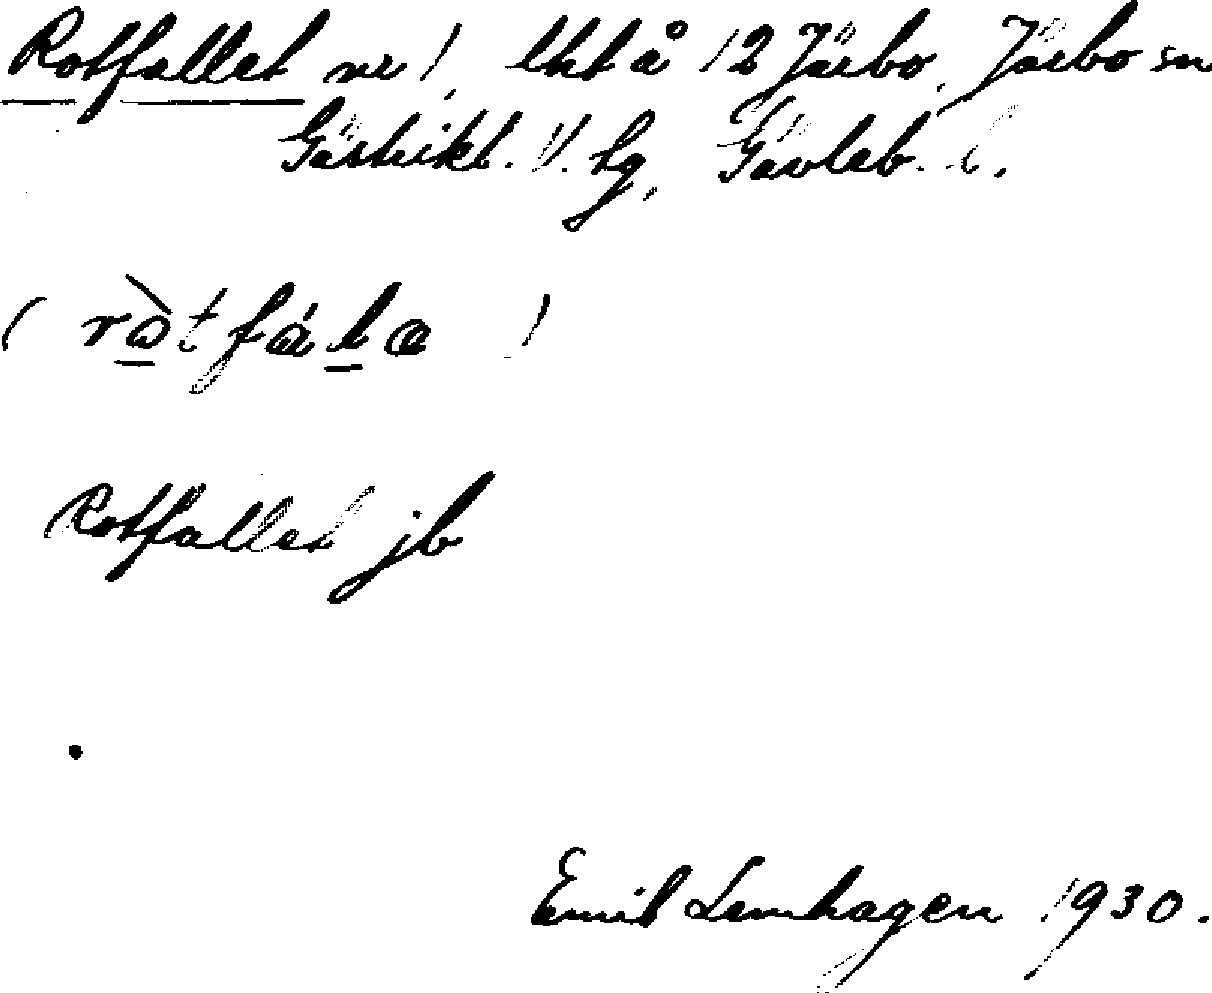 Rotfallet ve!, lht å 12 Järbo, Järbo sn
Gästrikl. V. hg, Gävleb. l.
( ròtfála )
Rotfallet jb
Emil Lemhagen 1930.